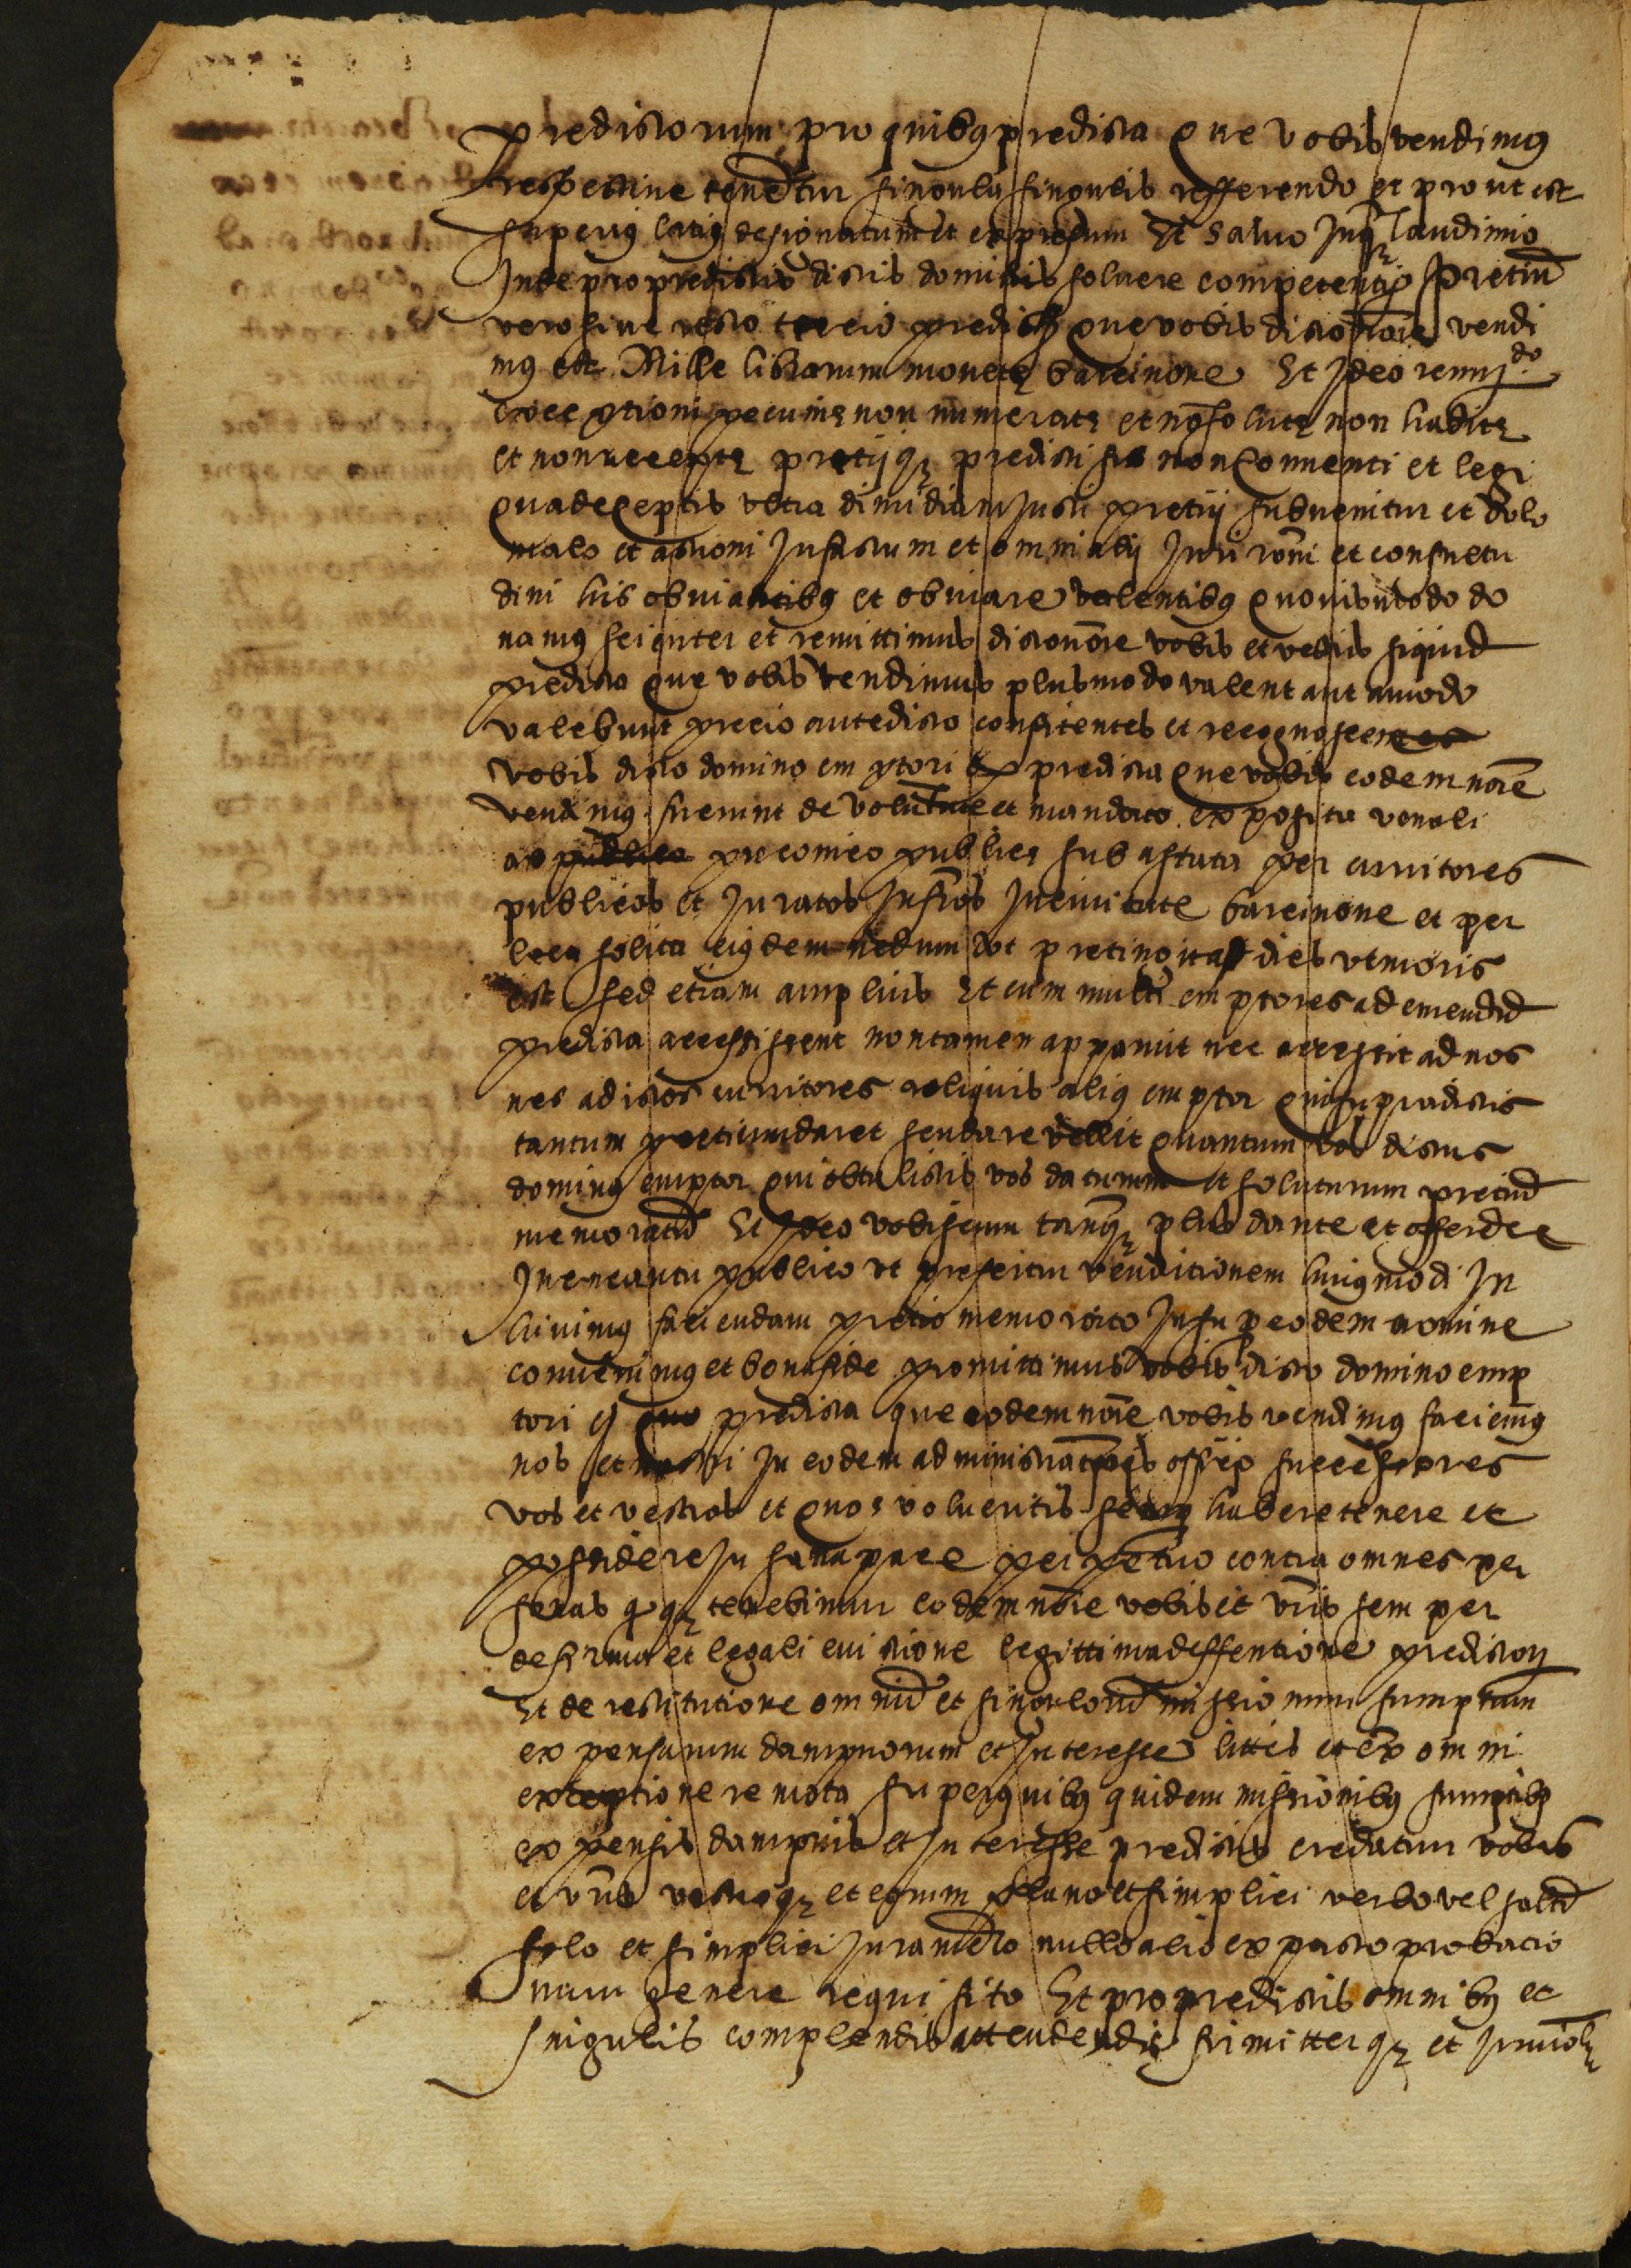 predictorum pro quibus predicta que vobis vendimus
respective tenentur singula singulis refferendo et prout est
superius latius designatum et expressum Et salvo jureque laudimio
Inde pro predictis dictis dominis solvere competentis Pretium
vero sive predictorum que vobis dicto nomine vendi
mus est Mille librarum monete barcinone Et Ideo renundo
exceptioni pecunie non numerate et non solute non habite
et non recepte pretijque predicti sic non conventi et legi
qua deceptis ultra dimidiam justi pretij subvenitur et dolo
malo et actioni In factum et omni alij Juri rationi et consuetu
dini his obviantibus et obviare valentibus quovismodo do
namus scienter et remittimus dicto nomine vobis et vestris siquid
predicta que vobis vendimus plus modo valent aut amodo
valebunt precio antedicto confitentes et recognoscentes
vobis dicto domino emptori quod predicta que vobis eodem nomine
vendimus fuerunt de voluntate et mandato exposita venali
ac preconico publice subastata per curritores
publicos et Juratos Infrascriptos In civitate barcinone et per
loca solita eiusdem nedum tot pretinoitas dies ut moris
est sed etiam amplius Et cum multi emptores ad emendum
predicta accessissent non tamen apparuit nec accessit ad nos
nec ad dictos curritores aliquis alius emptor qui in predictis
tantum pretium daret seu dare vellit quantum vos dictus
dominus emptor qui obtulistis vos daturum et soluturum pretium
memoratum Et Ideo vobiscum tanquam plus dante et offerente
In encantu publico ut prefertur venditionem huiusmodi In
hivimus faciendam pretio memorato Insuper eodem nomine
convenimus et bona fide promittimus vobis dicto domino emp
tori quod predicta que eodem nomine vobis vendimus faciemus
nos et nostri In eodem administrationis officio successores
vos et vestros et quos volueritis semper habere tenere et
possidere In sana pace perpetuo contra omnes per
sonas quodque tenebimur eodem nomine vobis et vestris semper
de firma et legali evictione legittima deffentione predictorum
Et de restitutione omnium et singulorum missionum sumptuum
expensarum dampnorum et Interesse littis et extra omni
exceptione remota super quibus quidem missionibus sumptibus
expensis dampnis et Interesse predictis credatur vobis
et vestris vestroque et eorum plano et simplici verbo vel saltem
solo et simplici Juramento nullo alio expacto probacio
num genere requisito Et pro predictis omnibus et
singulis complendis attendendis firmiterque et Inviolabiliter